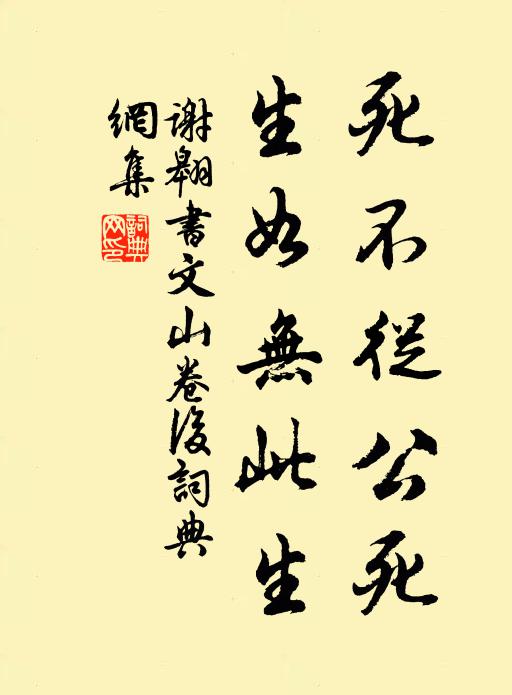 死不從公死
生如無此生
謝翱書文山卷後詞典
網集
詞典
网印